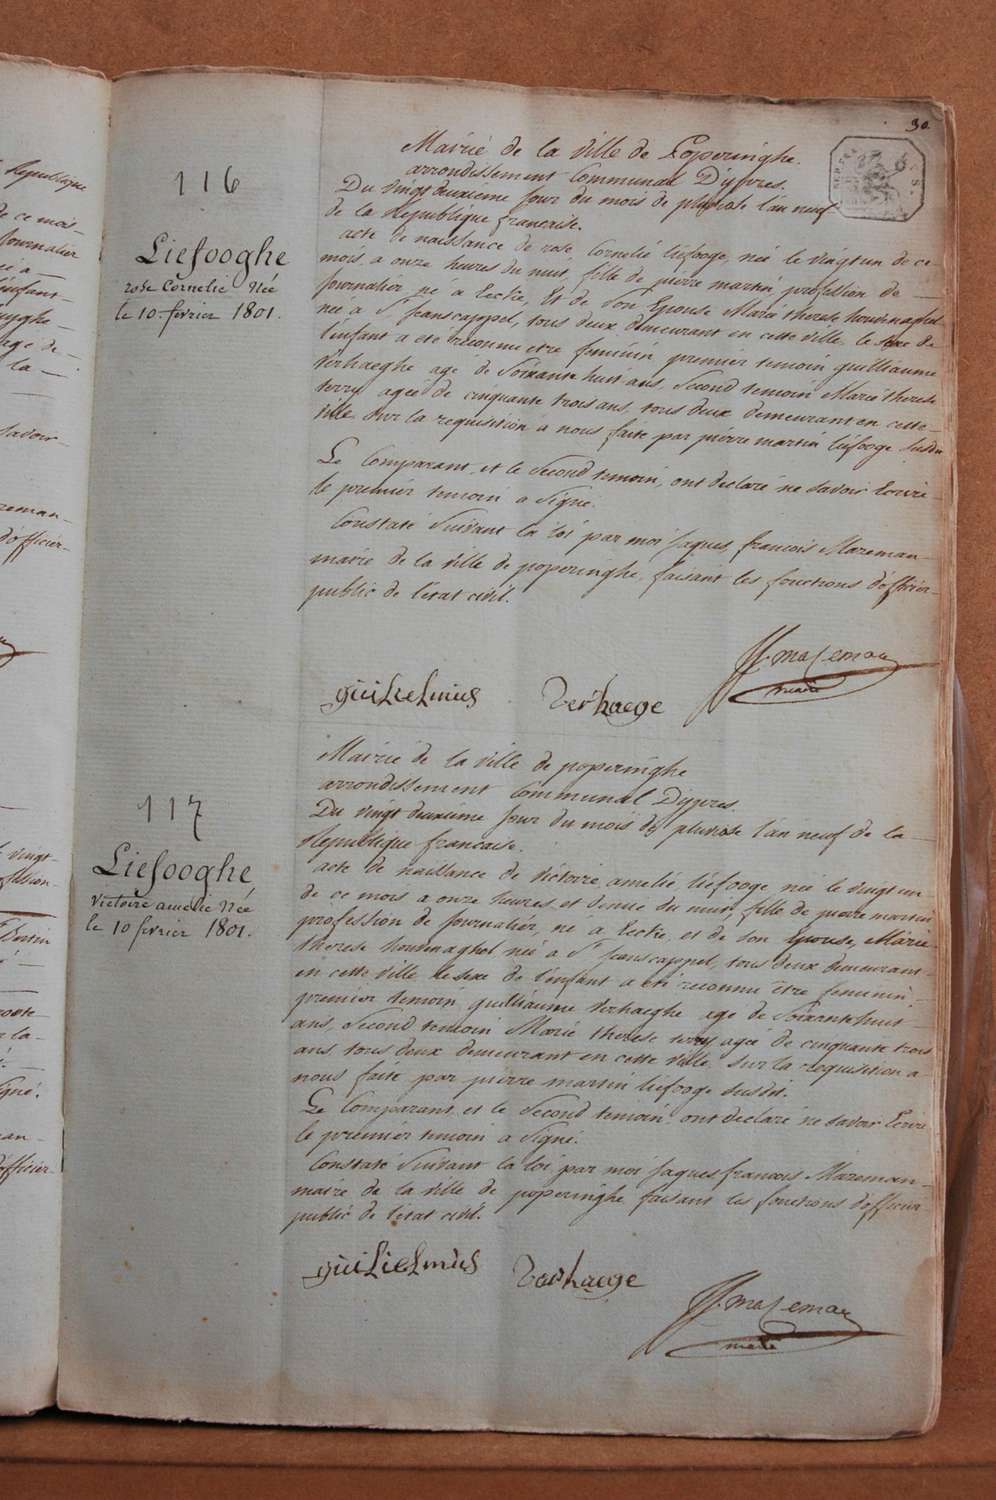 30
Mairié de la ville de Poperinghe.
arrondissement Communal D'ypres.
Du vingt deuxiéme Jour du mois de pluviose l'an neuf
de la Republique francaise.
116
Liefooghe
rose Cornelie Née
le 10 février 1801.
acte de naissance de rose Cornelié liefooge, née le vingt un de ce
mois a onze heures du nuit, fille de pierre martin, profession de
Journalier né a Eecke, Et de son Epouse Marie therese houvenaghel
née à St. Janscappel, tous deux demeurant en cette ville le sexe de
l'enfant a eté reconnu etre feminin premier temoin guilliaume
verhaeghe age de Soixante huit ans, Second temoin Marie therese
terry agée de cinquante trois ans, tous deux demeurant en cette
ville Sur la requisition a nous faite par pierre martin liefooge Susdit
Le Comparant, et le Second temoin, ont declaré ne savoir Ecrire
le premier temoin a Signe.
Constaté Suivant la loi par moi Jaques francois Mazeman
maire de la ville de poperinghe, faisant les fonctions d'officier
public de l'état civil.
JJ. Mazeman
maire
guilielmius Verhaege
Mairié de la ville de poperinghe
arrondissement Communal D'ypres.
Du vingt deuxiéme Jour du mois de pluviose l'an neuf de la
Republique francaise.
117
Liefooghe
Victoire amelie Née
le 10 février 1801.
acte de naissance de victoire amelié liefooge née le vingt un
de ce mois a onze heures et demie du nuit, fille de pierre martin
profession de Journaliér, né a Eecke, et de son Epouse, Marie
therese houvenaghel née à St. Janscappel, tous deux demeurant
en cette ville le sexe de l'enfant a eté reconnu être feminin
premier temoin guilliaume verhaeghe age de Soixante huit
ans, Second temoin Marie therese terry agée de cinquante trois
ans, tous deux demeurant en cette ville, Sur la requisition a
nous faite par pierre martin liefooge susdit.
Le Comparant, et le Second temoin ont declaré ne savoir Ecrire
le premier temoin a Signé.
Constaté Suivant la loi par moi Jaques francois Mazeman
maire de la ville de poperinghe faisant les fonctions d'officier
public de l'état civil.
guilielmius Verhaege
JJ. Mazeman
maire